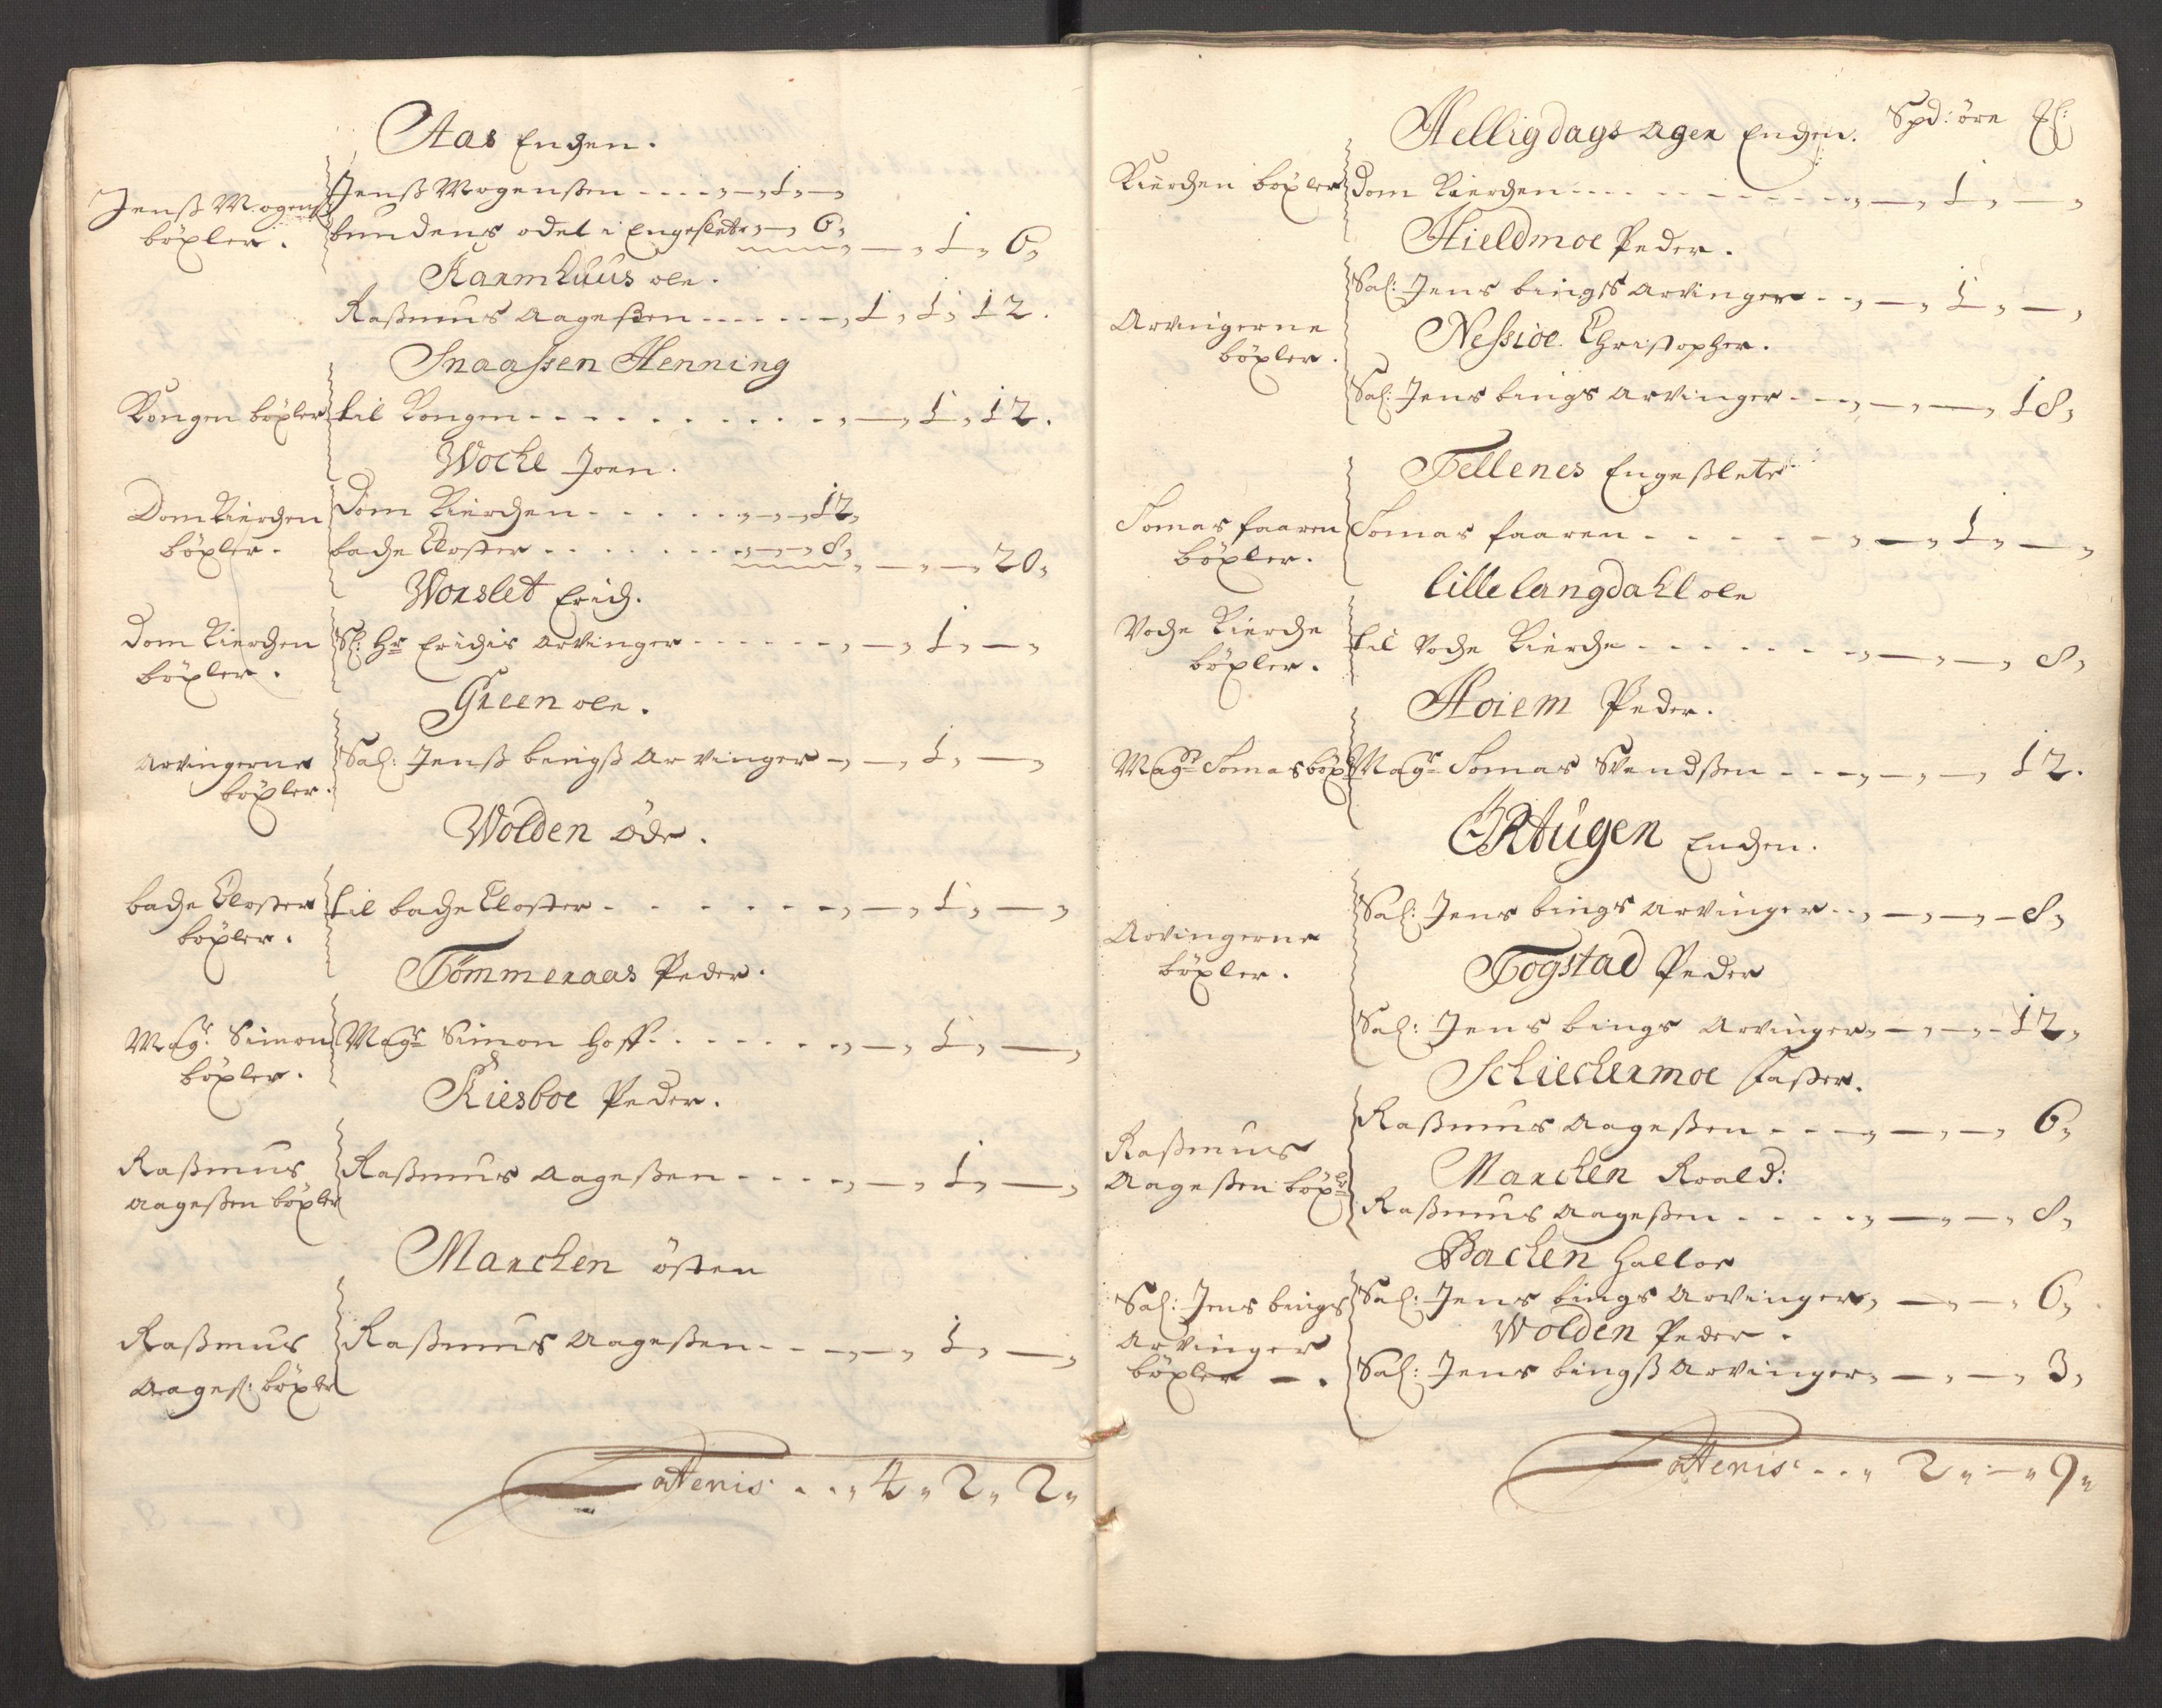 Aas Enchen.
Jenß Mogenß böxler.
Jenß Mogenßen - - - - „ — „ 1 „ — „
bundens odel i Engeslette „ — „ 6 „
„ — „ 1 „ 6 „
Karmhuus ole.
Raßmus Aageßen - - - - - - „ 1 „ 1 „ 12.
Snaaßen Henning
Kongen böxler
til Kongen - - - - - - - - - - „ — „ 1 „ 12.
Woche Joen.
Dom Kierchen böxler.
Dom Kierchen - - - - - „ — „ — „ 12 „
bache Closter - - - - - - - „ — „ — „ 8 „
„ — „ — „ 20 „
Worslet Erich.
Dom Kierchen böxler.
Sl: Hr Erichis Arvinger - - - - - - „ — „ 1 „ — „
Green ole.
Arvingerne böxler.
Sal: Jenß bingß Arvinger - „ — „ 1 „ — „
Wolden öde.
bache Closter böxler.
til bache Closter - - - - - - - „ — „ 1 „ — „
Tömmeraas Peder.
Magr. Simon böxler.
Magr Simon Hoff - - - - - - - „ — „ 1 „ — „
Kiesboe Peder.
Raßmus Aageßen böxler
Raßmus Aageßen - - - - - „ — „ 1 „ — „
Marchen östen
Raßmus Aageß: böxler
Raßmus Aageßen - - - „ — „ 1 „ — „
Lattenis: - - „ 4 „ 2 „ 2 „
Spd: öre
Helligdagsager Enchen.
Kierchen böxler
Dom Kierchen - - - - - - - - - - „ — „ 1 „ — „
Hieldmoe Peder.
Arvingerne böxler.
Sal: Jens bings Arvinger - - „ — „ 1 „ — „
Neßioe Christopher.
Sal: Jens bings Arvinger - - „ — „ — „ 18 „
Tellenes Engeßlette
Tomas faaren böxler.
Tomas faaren - - - - - - „ — „ 1 „ — „
lille langdahl ole
Voche Kierche böxler.
til Voche Kierche - - - - - - - „ — „ — „ 8 „
Hoiem Peder.
Magr Tomas böxl
Magr Tomas Svendßen - - - „ — „ — „ 12.
Enchen.
Arvingerne böxler.
Sal: Jens bings Arvinger - - „ — „ — „ 8 „
Togstad Peder
Sal: Jens bings Arvinger „ — „ — „ 12 „
Schiechermoe Faster.
Raßmus Aageßen böxlr
Raßmus Aageßen - - - - „ — „ — „ 6 „
Marchen Roald:
Raßmus Aageßen - - - - - „ — „ — „ 8 „
Bachen Halloe
Sal: Jens bings Arvinger böxler — .
Sal: Jens bings Arvinger „ — „ — „ 6 „
Wolden Peder.
Sal: Jens bingß Arvinger „ — „ — „ 3 „
Lattenis: - - „ 2 „ — „ 9 „